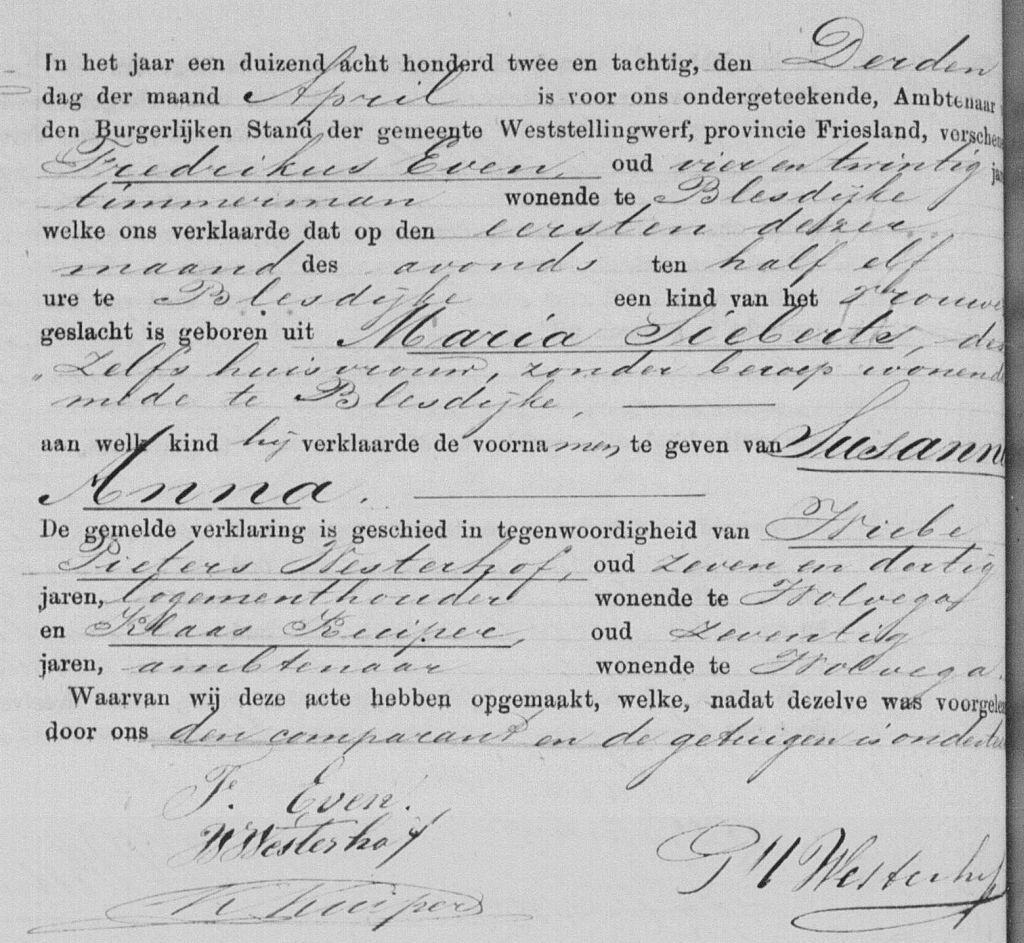 In het jaar een duizend acht honderd twee en tachtig, den Derden
dag der maand April is voor ons ondergeteekende, Ambtenaar
den Burgerlijken Stand der gemeente Weststellingwerf, provincie Friesland, verschene
Fredrikus Even, oud vier en twintig jar
timmerman wonende te Blesdijke
welke ons verklaarde dat op den eersten dezer
maand des avonds ten half elf
ure te Blesdijke een kind van het Vrouwe
geslacht is geboren uit Maria Sieberts, des
zelfs huisvrouw, zonder beroep wonende
mede te Blesdijke,
aan welk kind hij verklaarde de voornamen, te geven van Susanna
Anna.
De gemelde verklaring is geschied in tegenwoordigheid van Wiebe
Pieters Westerhof, oud zeven en dertig
jaren, logementhouder wonende te Wolvega
en Klaas Kuiper, oud zeventig
jaren, ambtenaar wonende te Wolvega.
Waarvan wij deze acte hebben opgemaakt, welke, nadat dezelve was voorgele
door ons den comparant en de getuigen is onderte
F. Even.
W Westerhof
K Kuiper
G H Westerhof